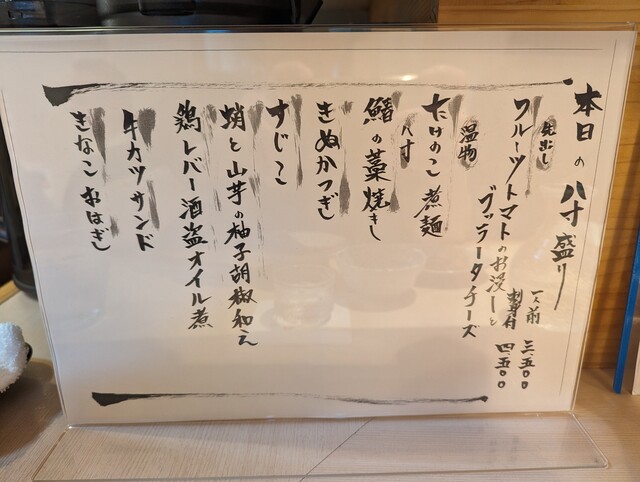 本日の八寸盛り
一人前 三、五〇〇
刺身付 四、五〇〇
先出し
フルーツトマトのお浸しと
ブッラータチーズ
温物
たけのこ煮麺
八寸
鰆の藁焼きし
きぬかつぎ
すじこ
蛸と山芋の柚子胡椒和え
鶏レバー酒盗オイル煮
牛カツサンド
きなこおはぎ